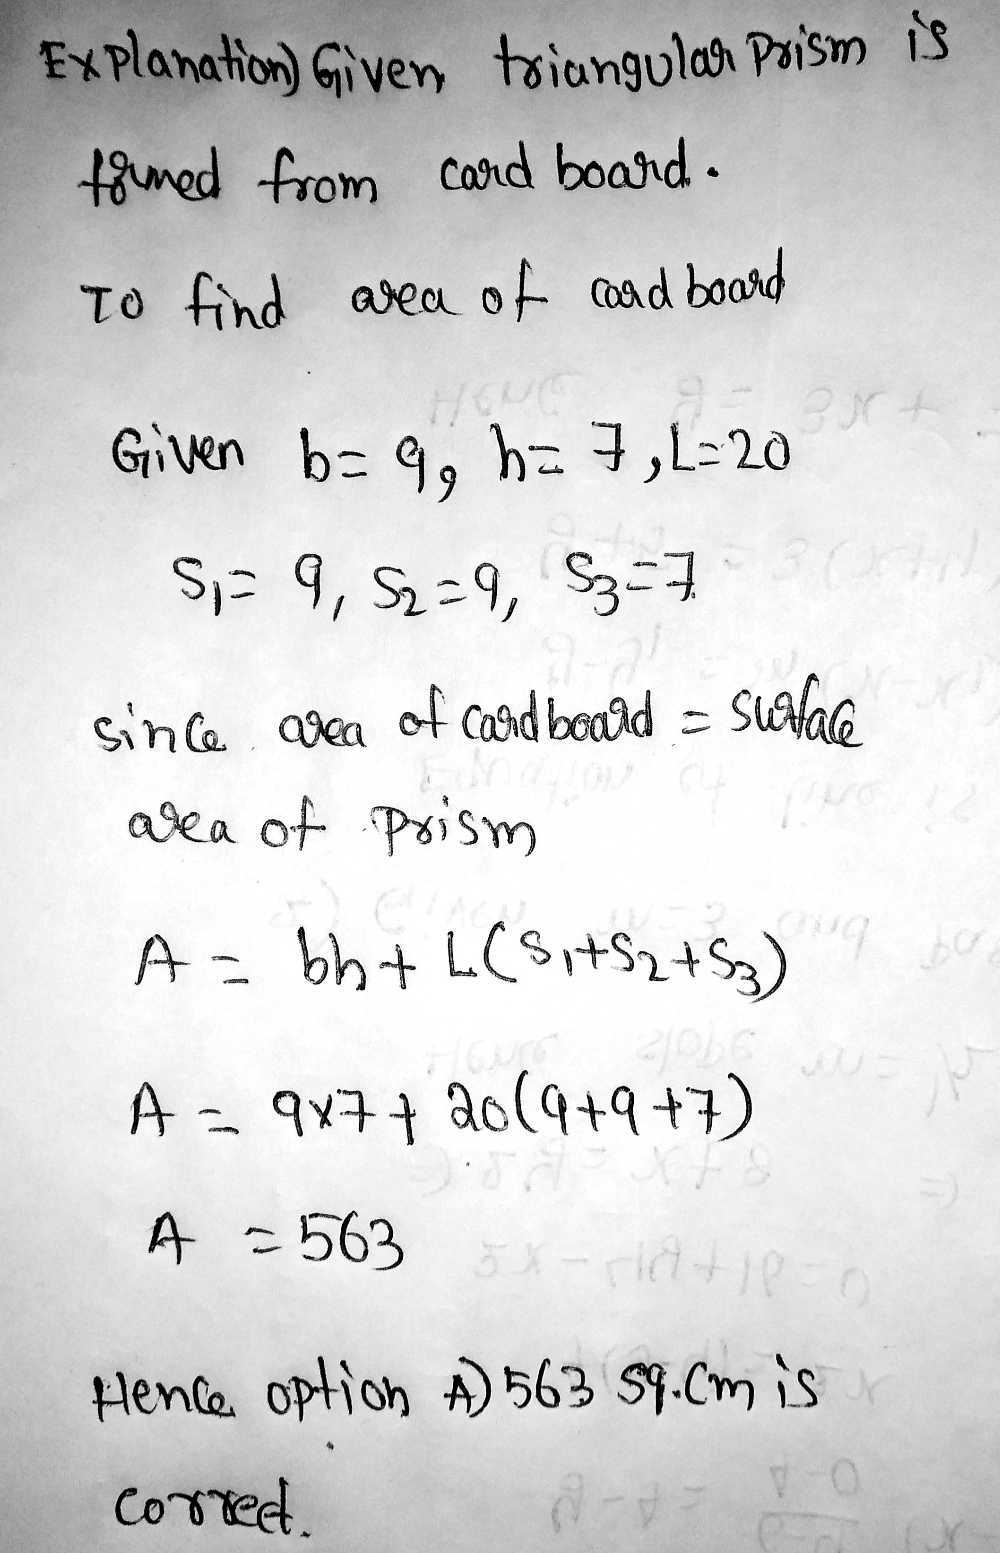 Explanation) Given triangular Prism is
formed from card board.
To find area of card board
Given b = 9, h = 7, L=20
S1 = 9, S2 = 9, S3 = 7
since area of cardboard = surface
area of Prism
A = bh + L(S1+S2+S3)
A = 9x7 + 20(9+9+7)
A = 563
Hence option A) 563 sq.cm is
correct.